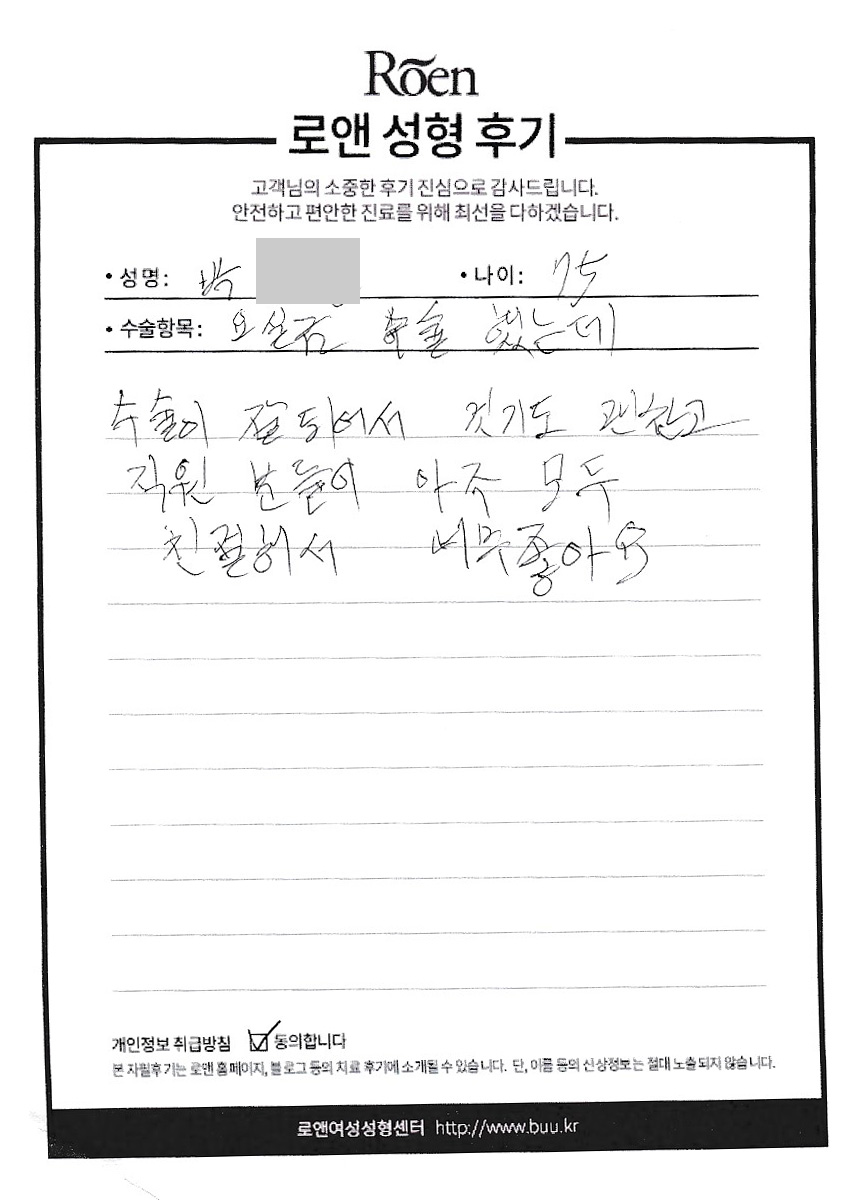 Rõen
로앤 성형 후기
고객님의 소중한 후기 진심으로 감사드립니다.
안전하고 편안한 진료를 위해 최선을 다하겠습니다.
• 성명: 박 • 나이: 75
• 수술항목: 요실금 수술 했는데
수술이 잘 되어서 걷기도 괜찮고
직원 분들이 아주 모두
친절해서 너무 좋아요
개인정보 취급방침 ☑ 동의합니다
본 자필후기는 로앤 홈페이지, 블로그 등의 치료 후기에 소개될 수 있습니다. 단, 이름 등의 신상정보는 절대 노출되지 않습니다.
로앤여성성형센터 http://www.buu.kr